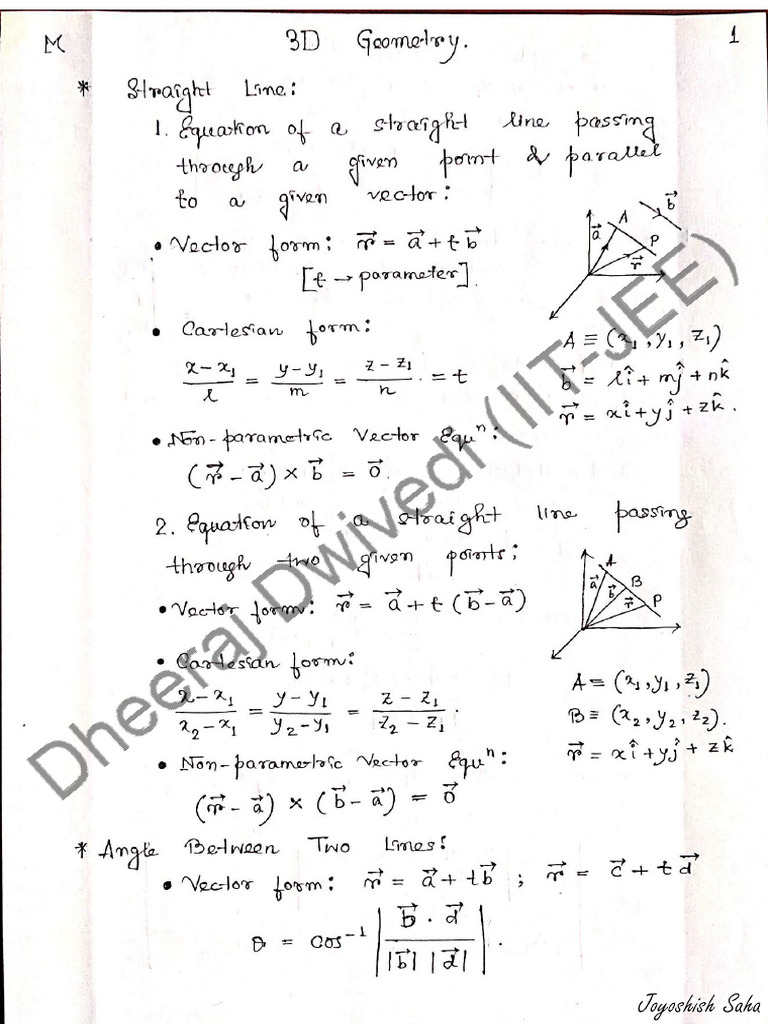 M
3D Geometry.
1
* Straight Line:
1. Equation of a straight line passing
through a given point & parallel
to a given vector:
• Vector form: r⃗ = a⃗ + t b⃗
[t → parameter].
b⃗
A
a⃗
P
r⃗
• Cartesian form:
(x - x₁)/l = (y - y₁)/m = (z - z₁)/n . = t
A ≡ (x₁, y₁, z₁)
b⃗ = lî + mĵ + nk̂
r⃗ = xî + yĵ + zk̂.
• Non-parametric Vector Equⁿ:
(r⃗ - a⃗) × b⃗ = 0⃗.
2. Equation of a straight line passing
through two given points:
• Vector form: r⃗ = a⃗ + t (b⃗ - a⃗)
A
a⃗
B
b⃗
r⃗
P
• Cartesian form:
(x - x₁)/(x₂ - x₁) = (y - y₁)/(y₂ - y₁) = (z - z₁)/(z₂ - z₁).
A ≡ (x₁, y₁, z₁)
B ≡ (x₂, y₂, z₂).
r⃗ = xî + yĵ + zk̂
• Non-parametric Vector Equⁿ:
(r⃗ - a⃗) × (b⃗ - a⃗) = 0⃗
* Angle Between Two Lines:
• Vector form: r⃗ = a⃗ + tb⃗ ; r⃗ = c⃗ + t d⃗
θ = cos⁻¹ |(b⃗ . d⃗)/(|b⃗| |d⃗|)|.
Dheeraj Dwivedi (IIT-JEE)
Joyoshish Saha